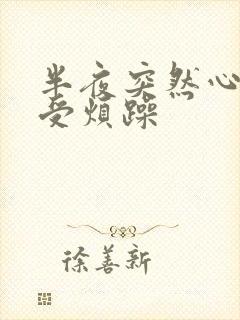 半夜突然心
受烦躁
徐善新